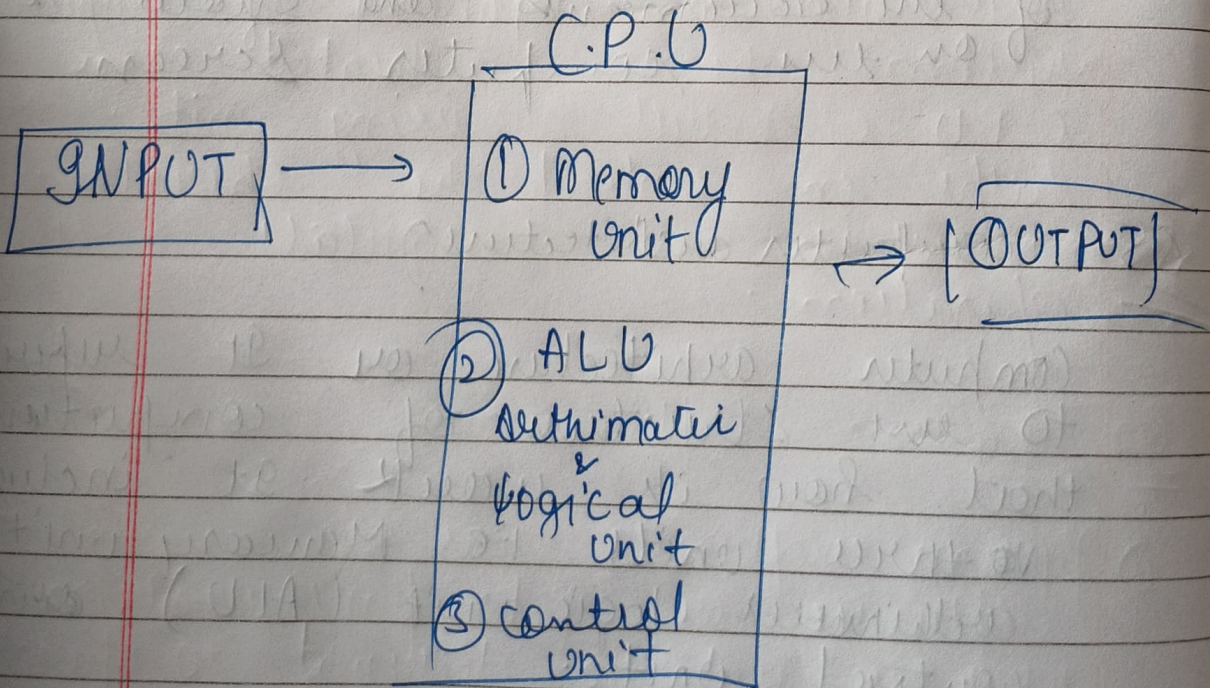 C.P.U
INPUT
① Memory
Unit
② ALU
Arthimatic
&
Logical
Unit
③ Control
Unit
OUTPUT